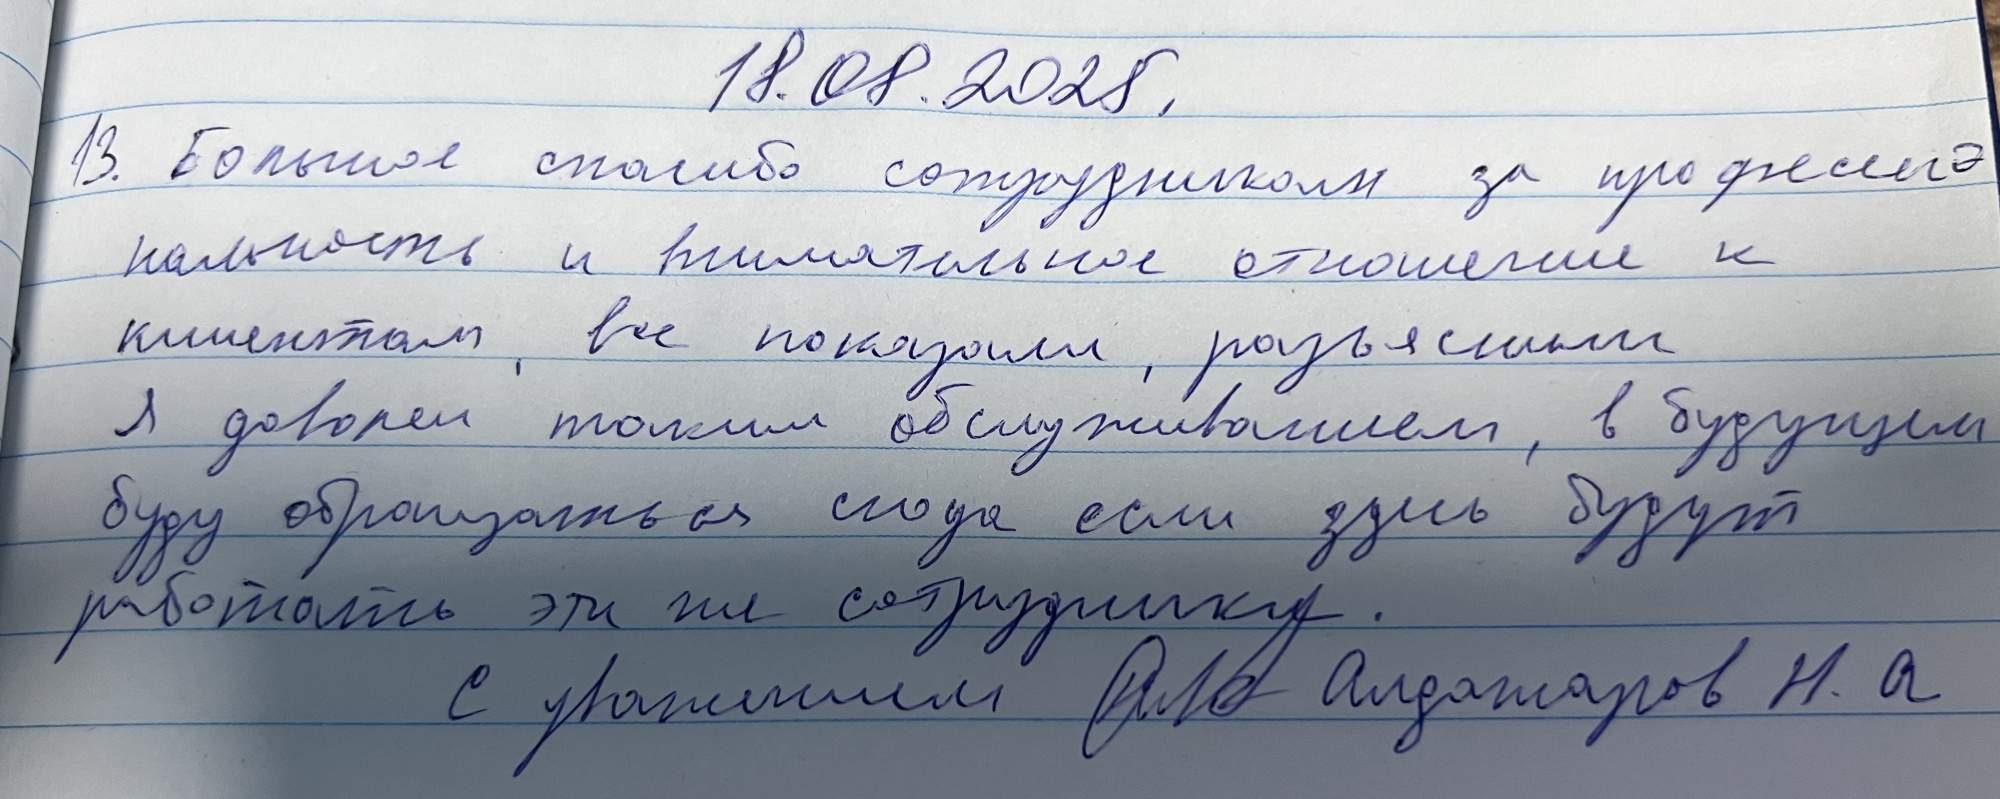 18.08.2025.
13. Большое спасибо сотрудникам за професего
нальность и внимательное отношение к
клиентам, все показали, разъяснили
Я доволен таким обслуживанием, в будущем
буду обращаться сюда если здесь будут
работать эти же сотрудники.
С уважением Алдажаров Н. А